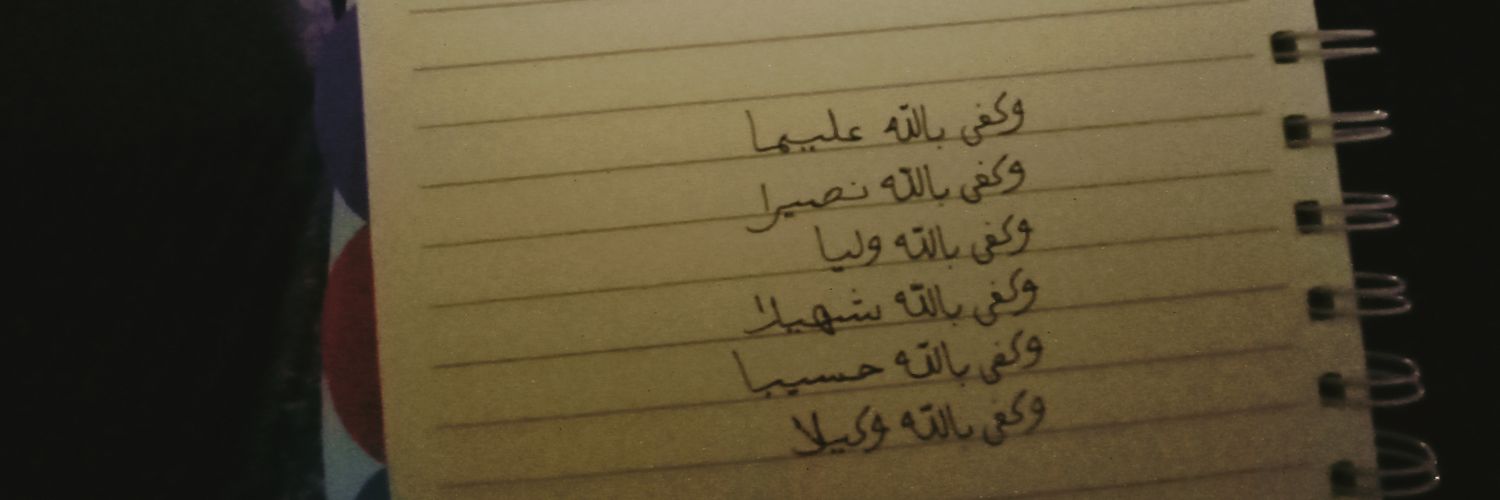 وكفى بالله عليما
وكفى بالله نصيرا
وكفى بالله وليا
وكفى بالله شهيدا
وكفى بالله حسيبا
وكفى بالله وكيلا